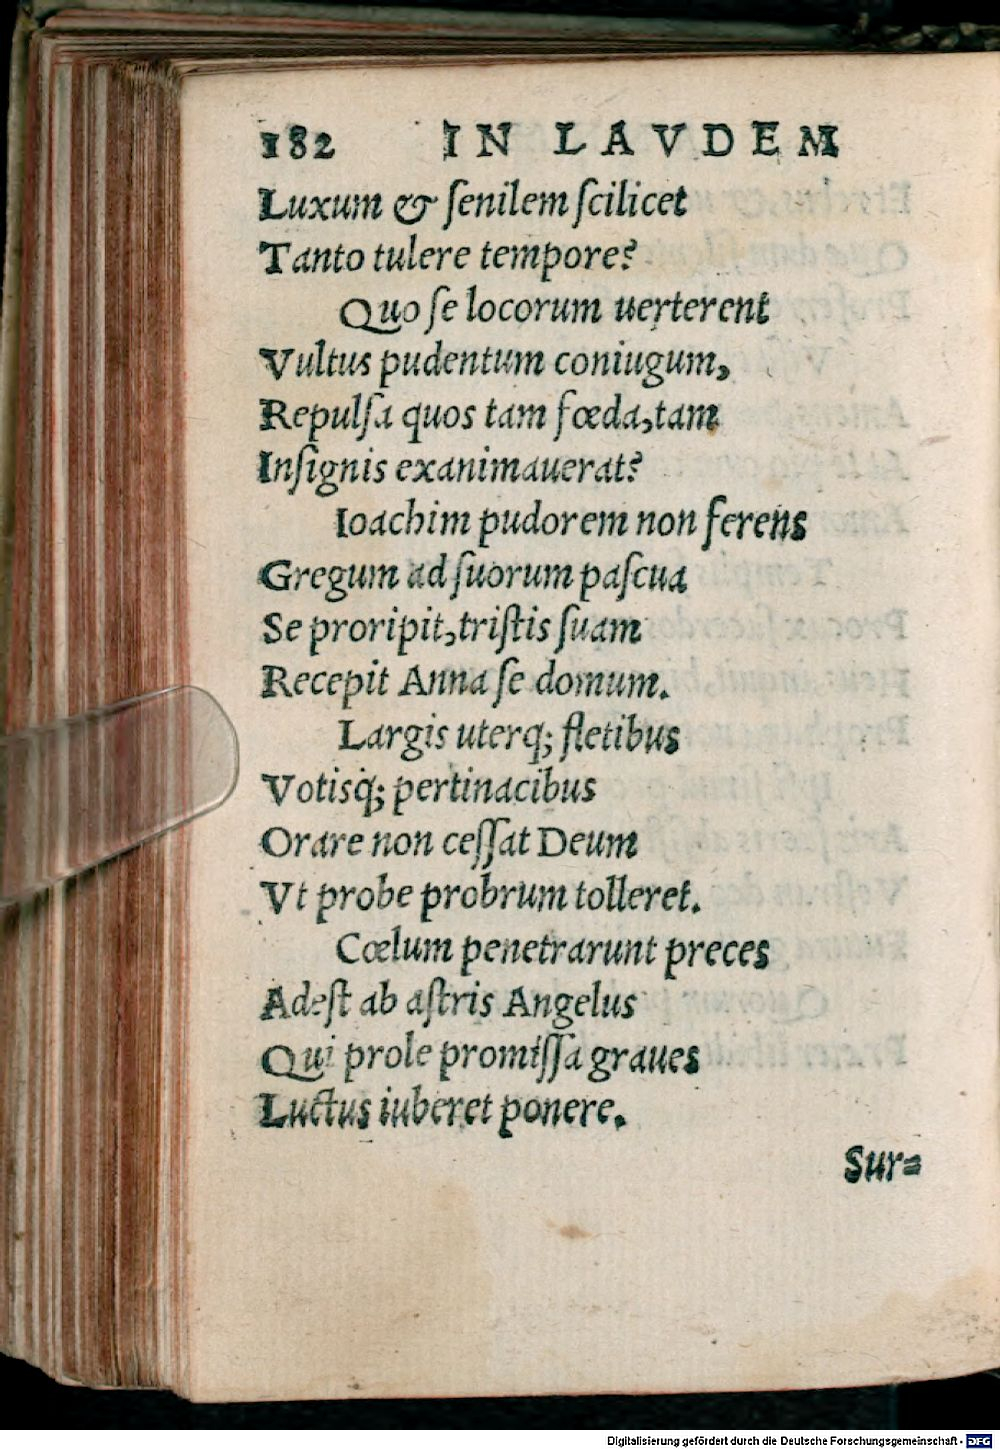 182 IN LAVDEM
Luxum & ſenilem ſcilicet
Tanto tulere tempore?
Quo ſe locorum uerterent
Vultus pudentum coniugum,
Repulſa quos tam fœda, tam
Inſignis exanimauerat?
Ioachim pudorem non ferens
Gregum ad ſuorum paſcua
Se proripit, triſtis ſuam
Recepit Anna ſe domum.
Largis uterq; fletibus
Votisq́; pertinacibus
Orare non ceſſat Deum
Vt probe probrum tolleret.
Cœlum penetrarunt preces
Adeſt ab aſtris Angelus
Qui prole promiſſa graues
Luctus iuberet ponere.
Sur=
Digitalisierung gefördert durch die Deutsche Forschungsgemeinschaft - DFG